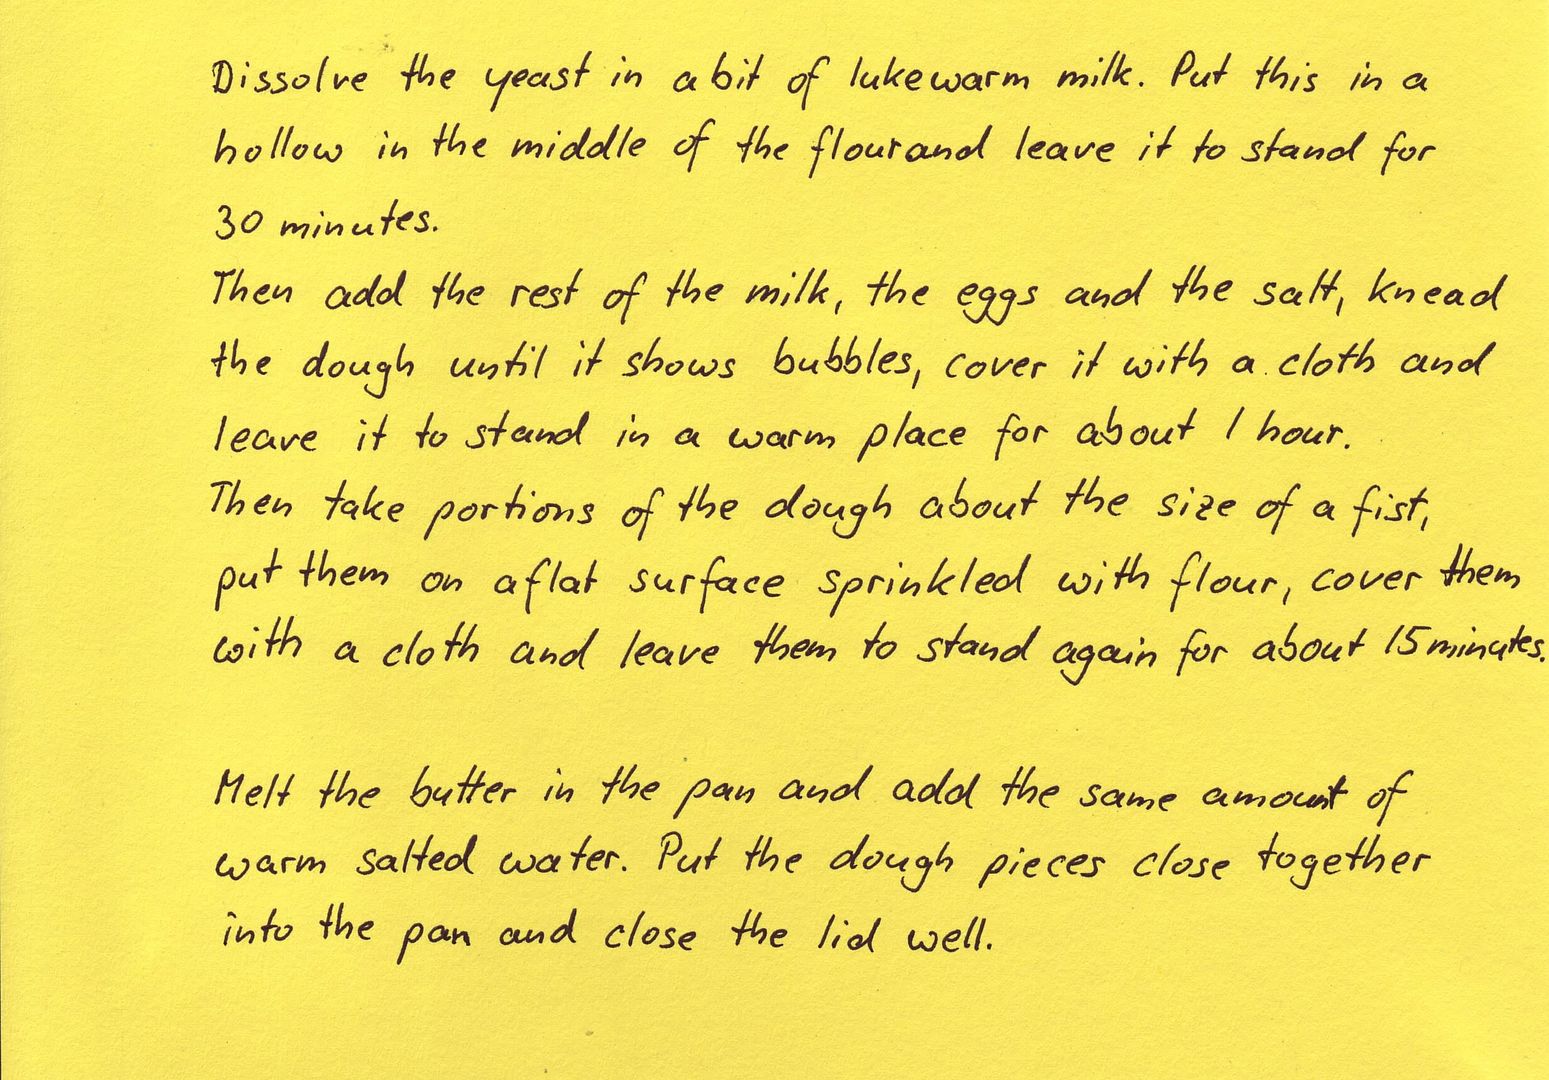 Dissolve the yeast in a bit of lukewarm milk. Put this in a
hollow in the middle of the flour and leave it to stand for
30 minutes.
Then add the rest of the milk, the eggs and the salt, knead
the dough until it shows bubbles, cover it with a cloth and
leave it to stand in a warm place for about 1 hour.
Then take portions of the dough about the size of a fist,
put them on a flat surface sprinkled with flour, cover them
with a cloth and leave them to stand again for about 15 minutes.
Melt the butter in the pan and add the same amount of
warm salted water. Put the dough pieces close together
into the pan and close the lid well.